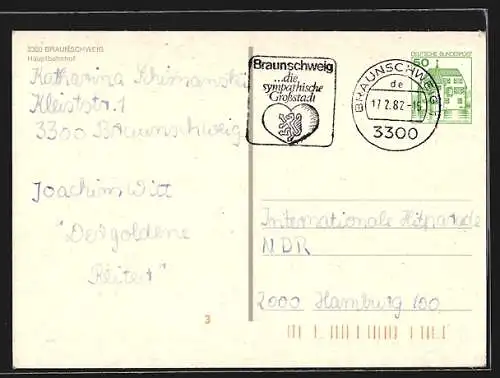 3300 BRAUNSCHWEIG
Hauptbahnhof
Katharina Schimanski
Kleiststr. 1
3300 Braunschweig
Joachim Witt
"Der goldene
Reiter"
3
Braunschweig
...die
sympathische
Großstadt
BRAUNSCHWEIG
de
17.2.82-15
3300
DEUTSCHE BUNDESPOST
50
Internationale Hitparade
NDR
2000 Hamburg 100